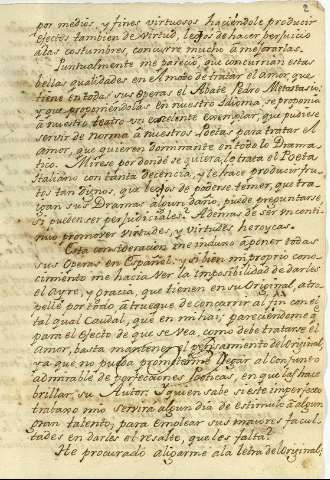 2
por medios, y fines virtuosos haciendole producir
efectos tambien de virtud, lejos de hacer perjuicio
a las costumbres, concurre mucho à mejorarlas.
Puntualmente me pareciò, que concurrian estas
bellas qualidades en el modo de tratar el Amor, que
tiene en todas sus operas el Abate Pedro Metastasio;
y que proponiendolas en nuestro Idioma, se proponia
à nuestro teatro un excelente exemplar, que pudiese
servir de norma à nuestros Poetas para tratar el
Amor, que quieren dominante en todo lo Drama-
tico. Mirese por donde se quiera, lo trata el Poeta
Italiano con tanta decencia, y le hace producir fru-
tos tan dignos, que lejos de poderse temer, que tra-
igan sus Dramas algun daño, puede preguntarse,
si pueden ser perjudiciales? Ademas de ser un conti-
nuo promover virtudes, y virtudes heroycas.
Esta consideracion me induxo à poner todas
sus Operas en Español: y si bien mi proprio cono-
cimiento me hacia ver la imposibilidad de darles
el Ayre, y Gracia, que tienen en su Original, atro-
pellè por todo à trueque de concurrir al fin con el
tal qual Caudal, que en mi hai; pareciendome à
para el efecto de que se vea, como debe tratarse el
Amor, basta mantener el pensamiento del Original,
ya que no pueda prometerme llegar al Conjunto
admirable de perfecciones Poeticas, en que las hace
brillar su Autor. Y quien sabe si este imperfecto
trabaxo mio servirà algun dia de estimulo à algun
gran talento, para emplear sus mayores facul-
tades en darles el resalte, que les falta?
He procurado aligarme à la letra del Original;